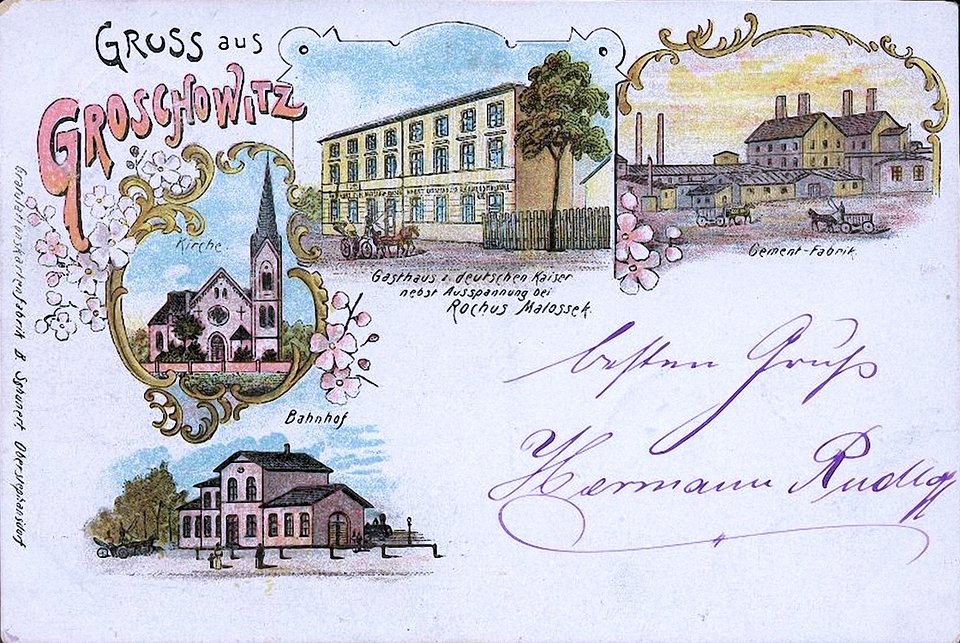 GRUSS aus
GROSCHOWITZ
Kirche.
Gasthaus z. deutschen Kaiser
nebst Ausspannung bei
Rochus Malossek.
Cement-Fabrik.
Bahnhof
besten Gruß
Hermann
Gratulationskartenfabrik B. Schunert Oberstephansdorf